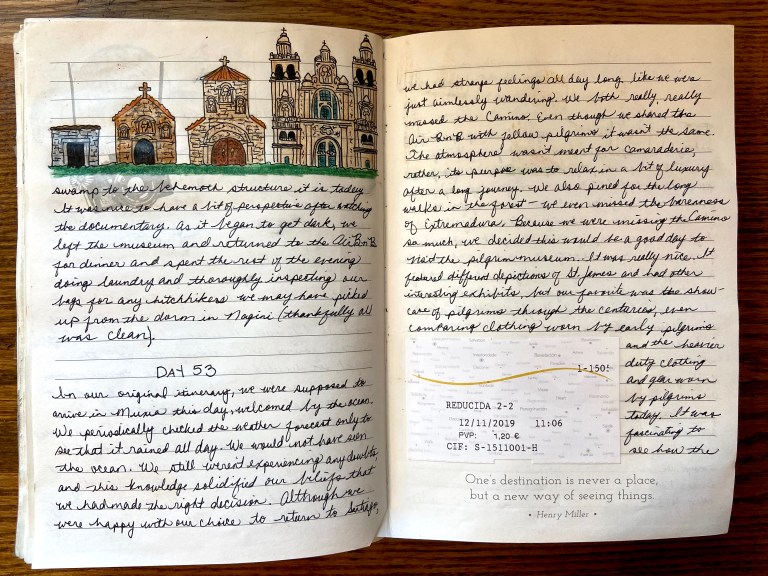 swamp to the behemoth structure it is today.
It was nice to have a bit of perspective after watching
the documentary. As it began to get dark, we
left the museum and returned to the Air BnB
for dinner and spent the rest of the evening
doing laundry and thoroughly inspecting our
bags for any hitchhikers we may have picked
up from the dorm in Nagini (thankfully all
was clean).
DAY 53
In our original itinerary, we were supposed to
arrive in Muxia this day, welcomed by the ocean.
We periodically checked the weather forecast only to
see that it rained all day. We would not have seen
the ocean. We still weren't experiencing any doubts,
and this knowledge solidified our beliefs that
we had made the right decision. Although we
were happy with our choice to return to Santiago,
we had strange feelings all day long, like we were
just aimlessly wandering. We both really, really
missed the Camino. Even though we shared the
Air BnB with fellow pilgrims it wasn't the same.
The atmosphere wasn't meant for camaraderie,
rather, its purpose was to relax in a bit of luxury
after a long journey. We also pined for the long
walks in the forest – we even missed the barenness
of Extremadura. Because we were missing the Camino
so much, we decided this would be a good day to
visit the pilgrim museum. It was really nice. It
featured different depictions of St. James and had other
interesting exhibits, but our favorite was the show-
case of pilgrims through the centuries, even
comparing clothing worn by early pilgrims
and the heavier
duty clothing
and gear worn
by pilgrims
today. It was
fascinating to
see how the
1-1505
REDUCIDA 2-2
12/11/2019 11:06
PVP: 1,20 €
CIF: S-1511001-H
One's destination is never a place,
but a new way of seeing things.
• Henry Miller •